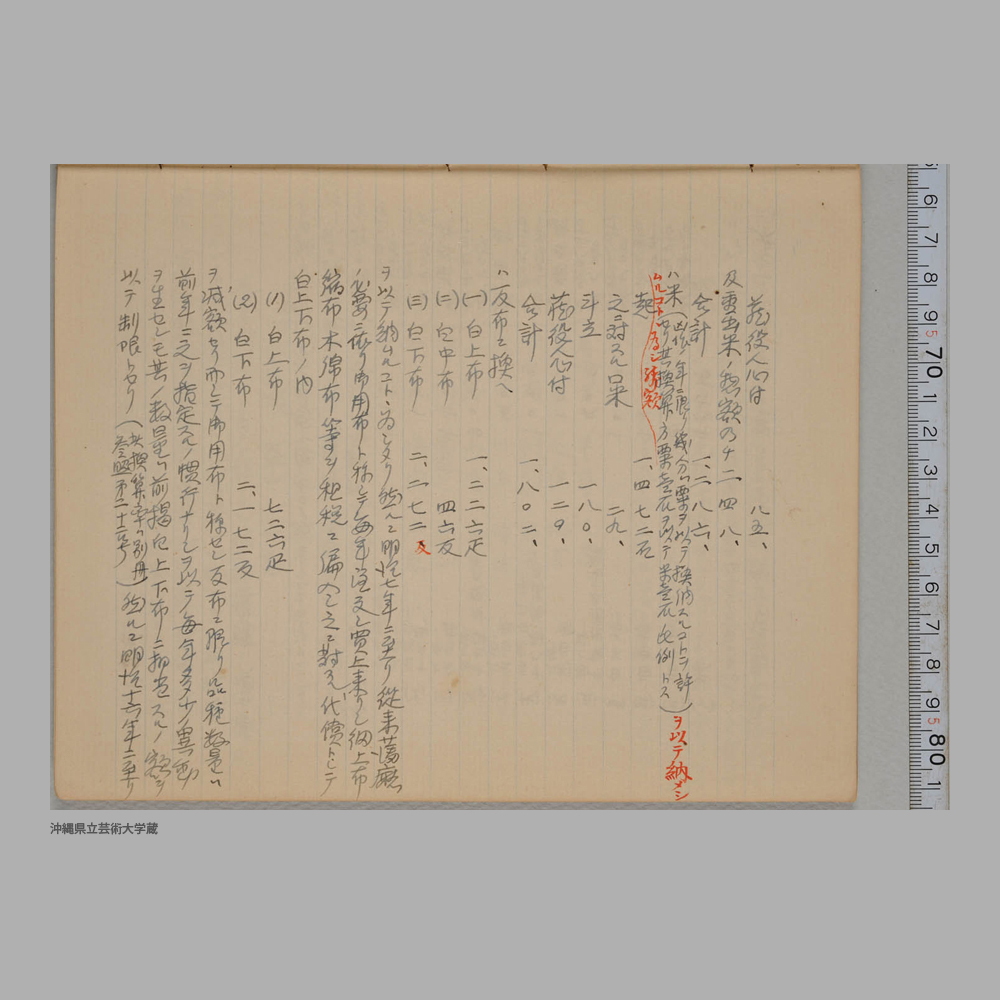 蔵役人心付 八五、
及重出米ノ惣額ノ内 二四八、
合計 一、二八六、
ハ米(凶作ノ年ニ限リ幾分ハ粟ヲ以テ換納スルコトヲ許
シ其換算方粟壱石ヲ以テ米壱石ノ比例トス)ヲ以テ納メシ
ムルコトヽ為シ残額
起 一、四七二石
之ニ対スル口米 二九、
斗立 一八〇、
蔵役人心付 一二九、
合計 一、八〇二、
ハ反布ニ換ヘ
(一) 白上布 一、二二六疋
(二) 白中布 四六反
(三) 白下布 二、二七二反
ヲ以テ納ムルコトヽ為シタリ然ルニ明治七年ニ至リ従来藩庁
ノ必要ニ依リ御用布ト称シテ毎年注文シ買上来リシ細上布
縮布木綿布等ヲ租税ニ編入シ之ニ対スル代償トシテ
白上下布ノ内
(1) 白上布 七二六疋
(2) 白下布 二、一七二反
ヲ減額セリ而シテ御用布ト称セシ反布ニ限リ品種数量ハ
前年ニ之ヲ指定スルノ慣行ナリシヲ以テ毎年多少ノ異動
ヲ生セシモ其ノ数量ハ前掲白上下布ニ相当スルノ額ヲ
以テ制限トセリ(其換算率ハ別冊
参照第二十二号)然ルニ明治十六年ニ至リ
沖縄県立芸術大学蔵